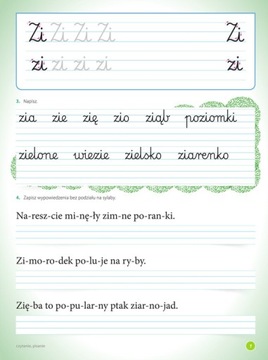 Zi Zi Zi Zi Zi
zi zi zi zi zi
3. Napisz.
zia zie zię zio ziąb poziomki
zielone wiezie zielsko ziarenko
4. Zapisz wypowiedzenia bez podziału na sylaby.
Na-resz-cie mi-nę-ły zim-ne po-ran-ki.
Zi-mo-ro-dek po-lu-je na ry-by.
Zię-ba to po-pu-lar-ny ptak ziar-no-jad.